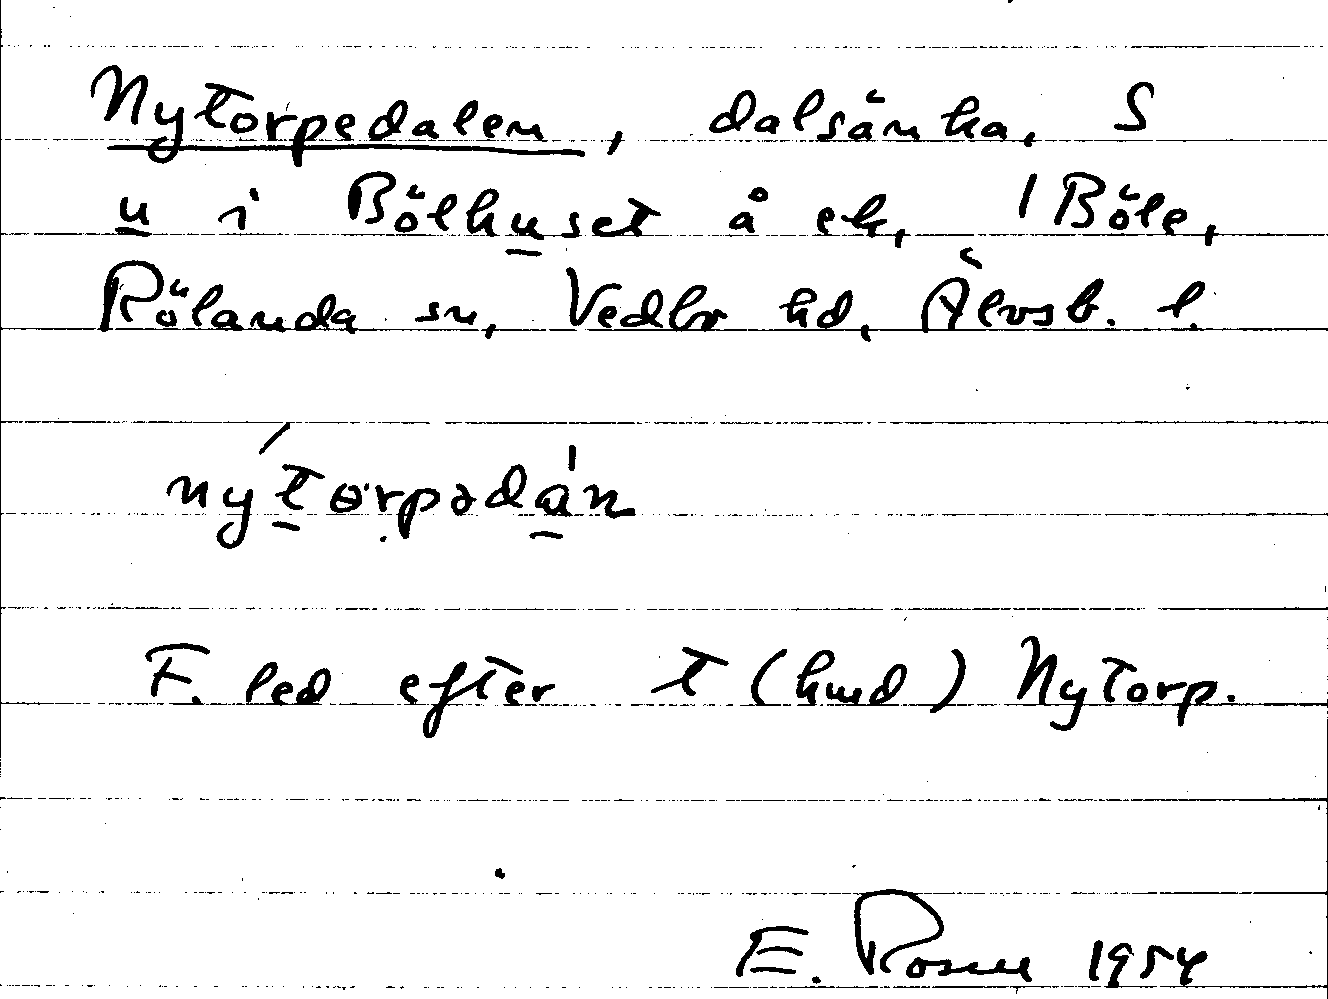 Nytorpedalen, dalsänka, S
u i Bölhuset å ek, 1 Böle,
Rölanda sn, Vedbo hd, Älvsb. l.
nýtorpədán
F. led efter t (hmd) Nytorp.
E. Rosell 1954